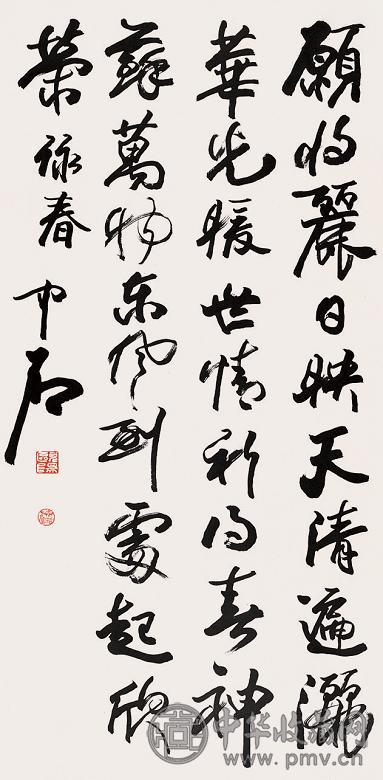 願将麗日映天清遍灑
華光暖世情祈得春神
蘇萬物東風到處起欣
榮 詠春 中石
中华收藏网
www.pmv.cn